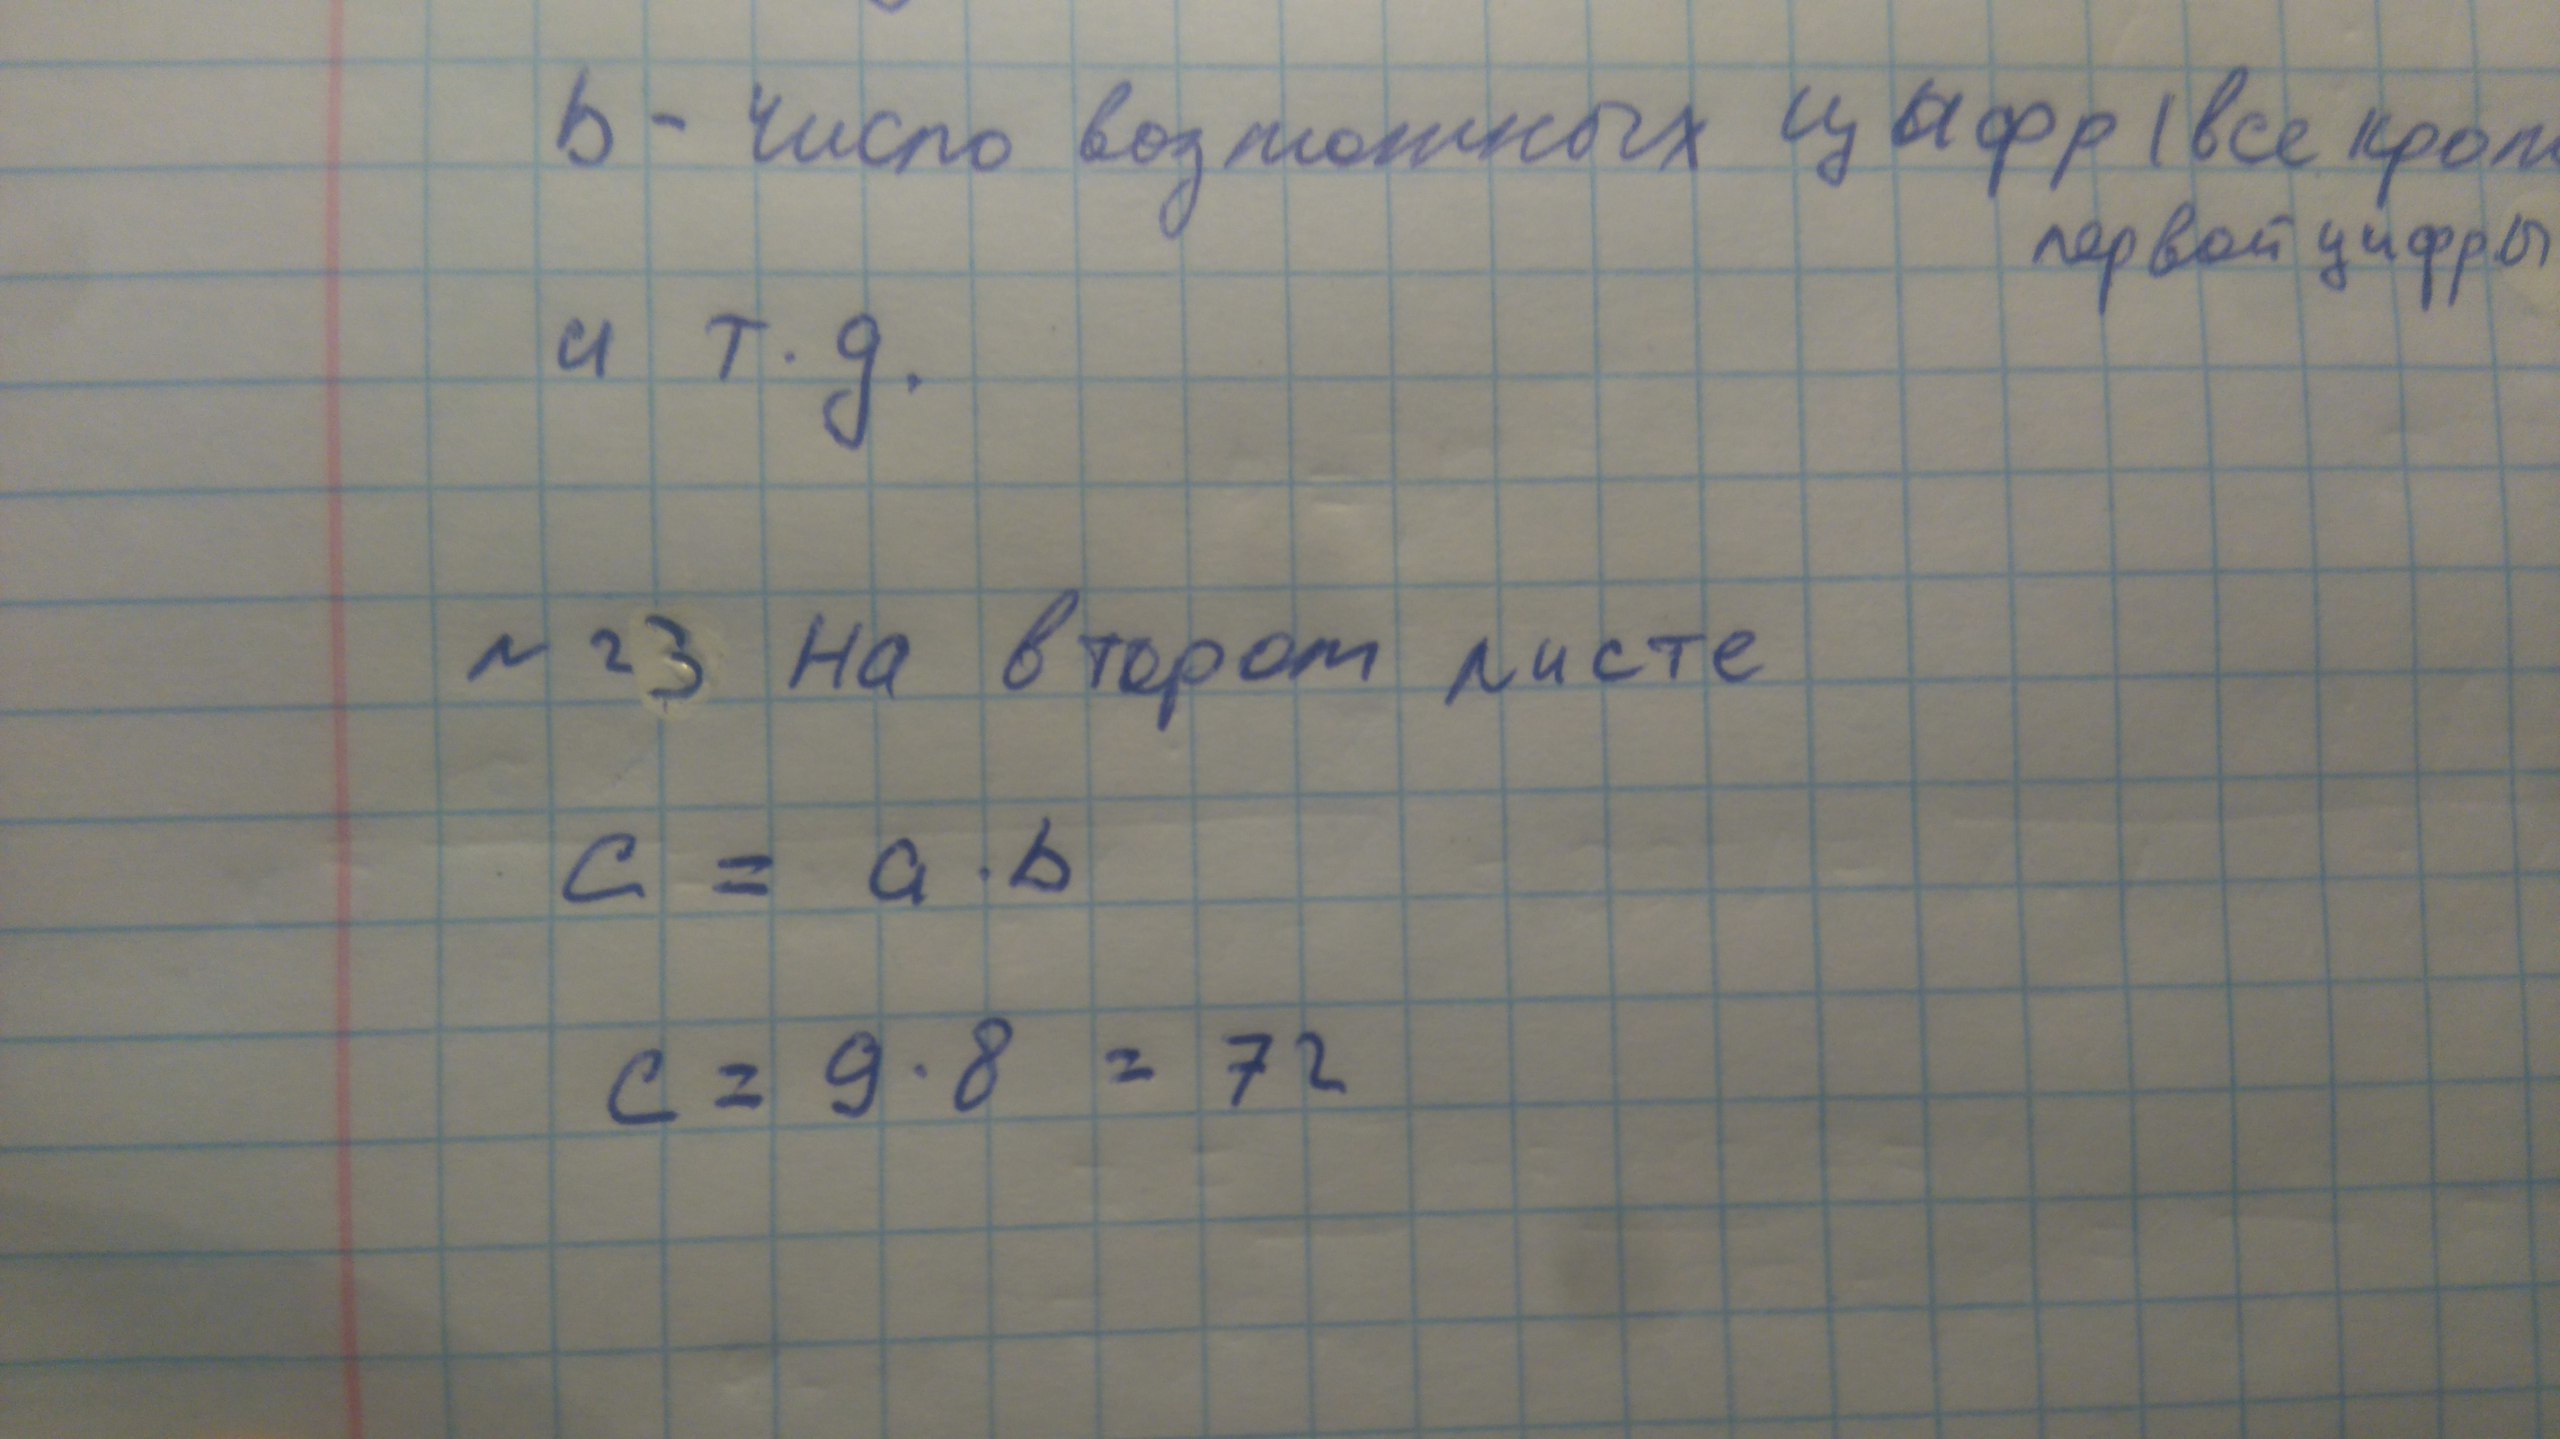 b - число возможных цыфр (все кром
первой цифры
и т.д.
№23 На втором листе
c = a · b
c = 9 · 8 = 72